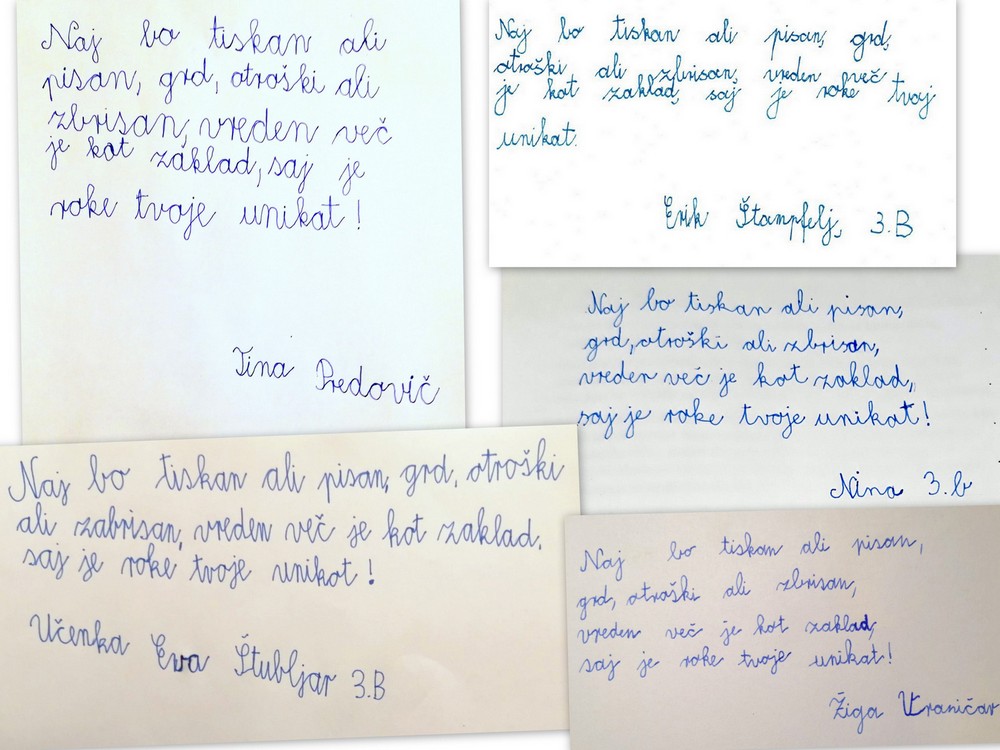 Naj bo tiskan ali
pisan, grd, otroški ali
zbrisan, vreden več
je kot zaklad, saj je
roke tvoje unikat!
Tina Predovič
Naj bo tiskan ali pisan, grd,
otroški ali zbrisan, vreden več
je kot zaklad, saj je roke tvoj
unikat.
Erik Štampfelj, 3.B
Naj bo tiskan ali pisan,
grd, otroški ali zbrisan,
vreden več je kot zaklad,
saj je roke tvoje unikat!
Nina 3.b
Naj bo tiskan ali pisan, grd, otroški
ali zabrisan, vreden več je kot zaklad,
saj je roke tvoje unikat!
Učenka Eva Štubljar 3.B
Naj bo tiskan ali pisan,
grd, otroški ali zbrisan,
vreden več je kot zaklad,
saj je roke tvoje unikat!
Žiga Vraničar